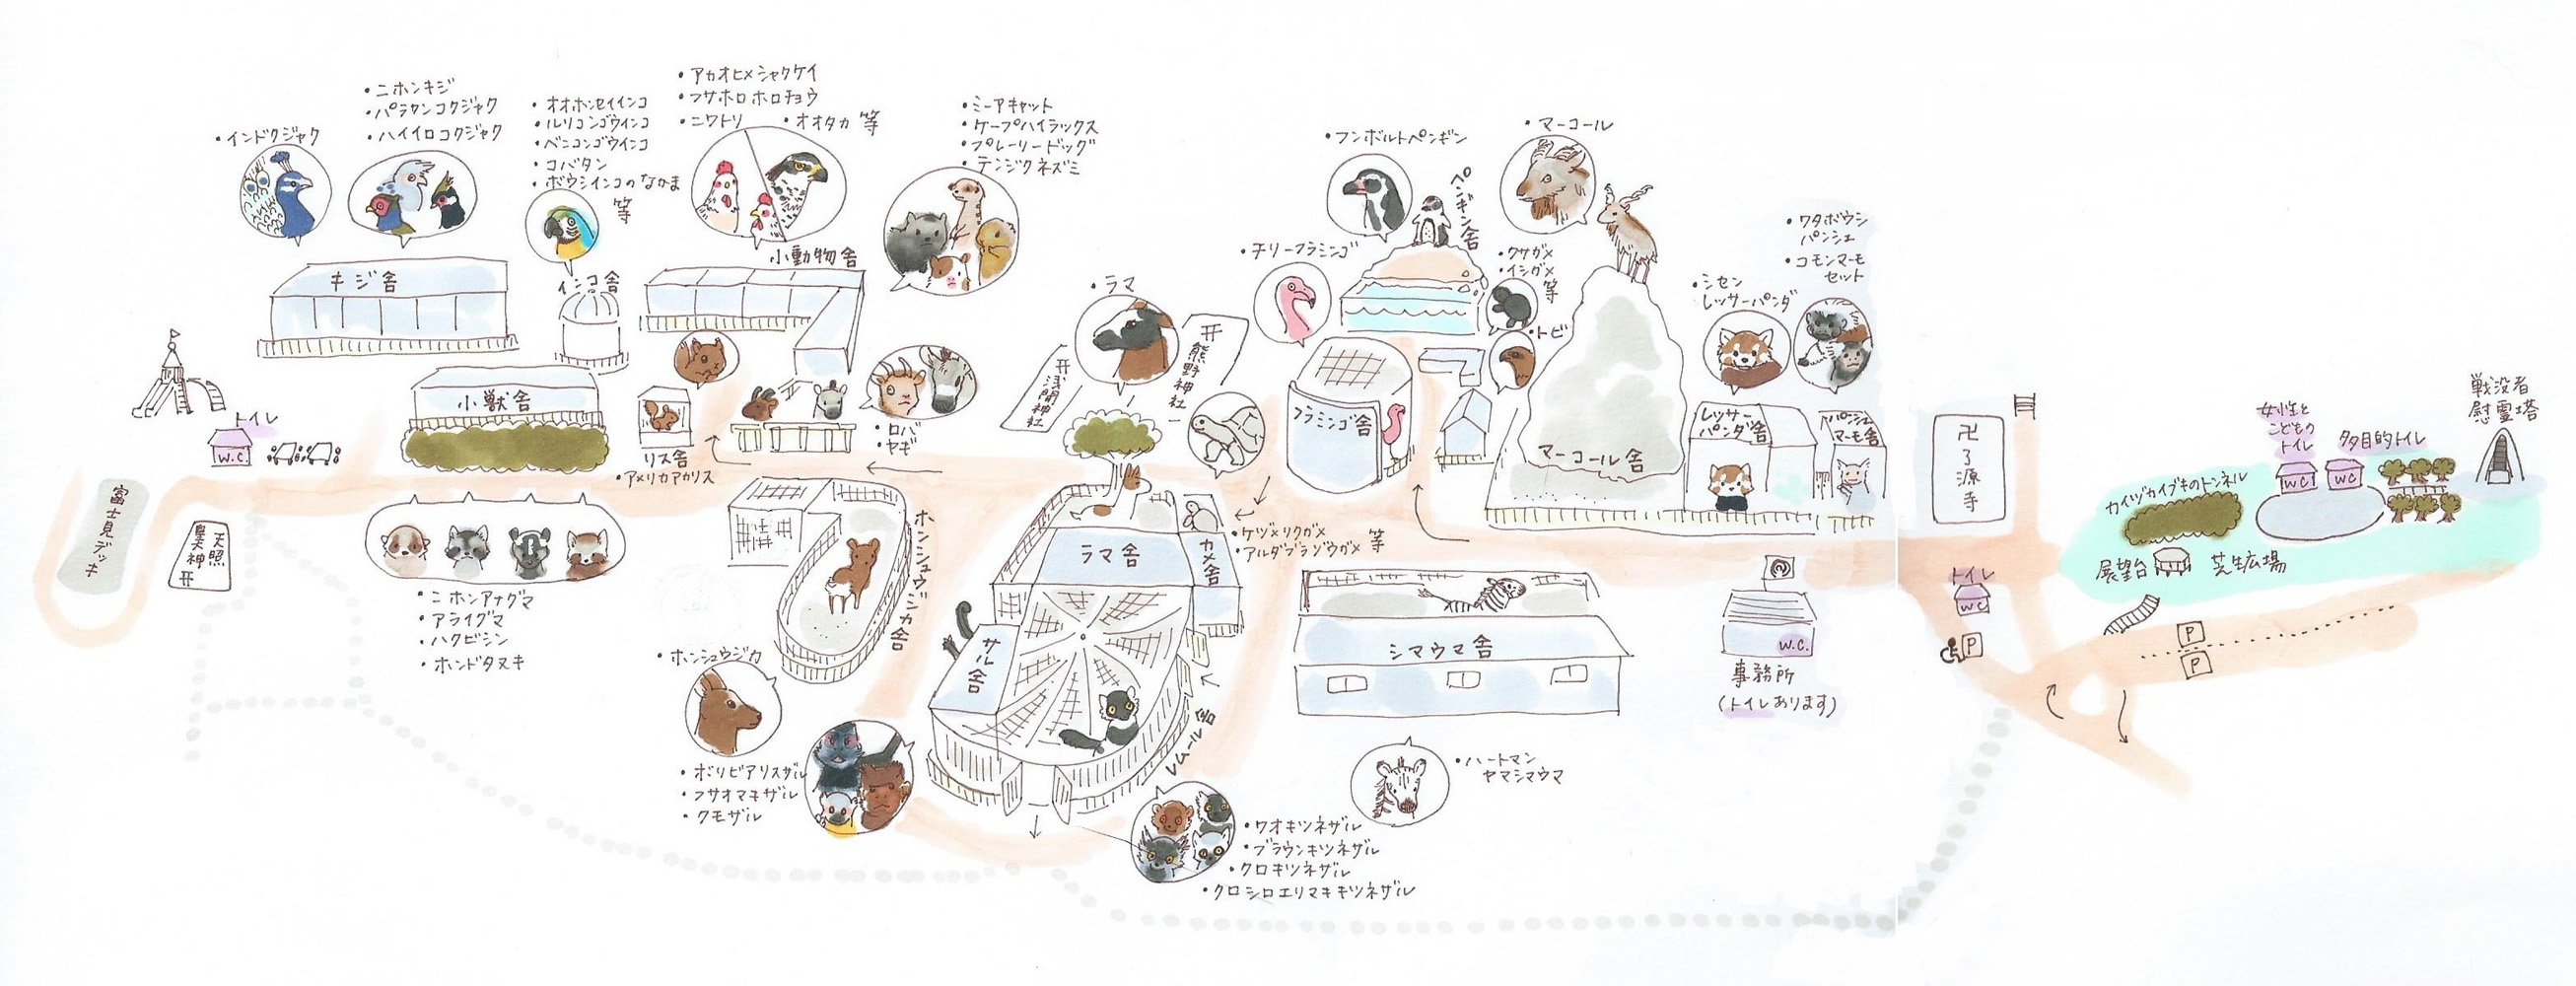 ・インドクジャク
・ニホンキジ
・パラワンコクジャク
・ハイイロコクジャク
・オオホンセイインコ
・ルリコンゴウインコ
・ベニコンゴウインコ
・コバタン
・ボウシインコのなかま
等
・アカオヒメシャクケイ
・フサホロホロチョウ
・ニワトリ
・オオタカ 等
・ミーアキャット
・ケープハイラックス
・プレーリードッグ
・テンジクネズミ
キジ舎
インコ舎
小動物舎
・ラマ
・チリーフラミンゴ
・フンボルトペンギン
ペンギン舎
・マーコール
・クサガメ
・イシガメ
等
・トビ
・シセン
レッサーパンダ
・ワタボウシ
パンシェ
・コモンマーモ
セット
トイレ
W.C.
小獣舎
リス舎
・アメリカアカリス
・ロバ
・ヤギ
浅間神社
熊野神社
フラミンゴ舎
マーコール舎
レッサー
パンダ舎
パンシェ
マーモ舎
卍了源寺
女性と
こどもの
トイレ
多目的トイレ
WC
WC
戦没者
慰霊塔
カイヅカイブキのトンネル
展望台
芝生広場
富士見デッキ
天照
皇大神
・ニホンアナグマ
・アライグマ
・ハクビシン
・ホンドタヌキ
ホンシュウジカ舎
・ホンシュウジカ
ラマ舎
カメ舎
・ケヅメリクガメ
・アルダブラゾウガメ 等
サル舎
レムール舎
・ボリビアリスザル
・フサオマキザル
・クモザル
・ワオキツネザル
・ブラウンキツネザル
・クロキツネザル
・クロシロエリマキキツネザル
シマウマ舎
・ハートマン
ヤマシマウマ
W.C.
事務所
(トイレあります)
トイレ
WC
P
P
P